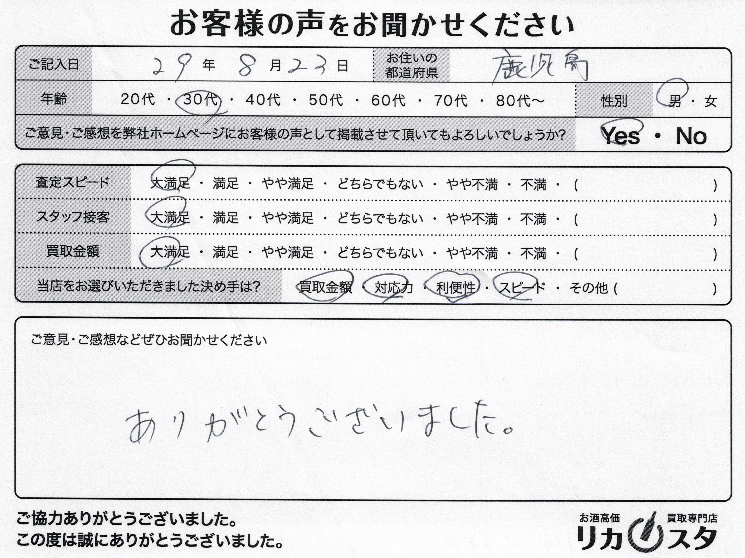 お客様の声をお聞かせください
ご記入日 29年 8月23日 お住いの都道府県 鹿児島
年齢 20代・30代・40代・50代・60代・70代・80代〜 性別 男・女
ご意見・ご感想を弊社ホームページにお客様の声として掲載させて頂いてもよろしいでしょうか? Yes・No
査定スピード 大満足・満足・やや満足・どちらでもない・やや不満・不満・( )
スタッフ接客 大満足・満足・やや満足・どちらでもない・やや不満・不満・( )
買取金額 大満足・満足・やや満足・どちらでもない・やや不満・不満・( )
当店をお選びいただきました決め手は? 買取金額・対応力・利便性・スピード・その他( )
ご意見・ご感想などぜひお聞かせください
ありがとうございました。
ご協力ありがとうございました。
この度は誠にありがとうございました。
お酒高価 買取専門店
リカスタ